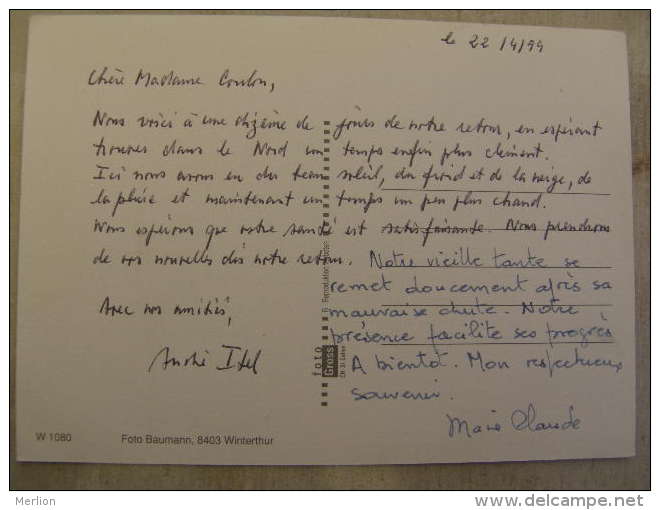 le 22/4/99
Chère Madame Coulon,
Nous voici à une dizaine de jours de notre retour, en espérant
trouver dans le Nord un temps enfin plus clément.
Ici nous avons eu du beau soleil, du froid et de la neige, de
la pluie et maintenant un temps un peu plus chaud.
Nous espérons que votre santé est satisfaisante. Nous prendrons
de vos nouvelles dès notre retour. Notre vieille tante se
remet doucement après sa
mauvaise chute. Notre
présence facilite ses progrès
A bientôt. Mon respectueux
souvenir.
Marie Claude
Avec nos amitiés,
André
foto
Gross
W 1080
Foto Baumann, 8403 Winterthur
Merlion
www.delcampe.net